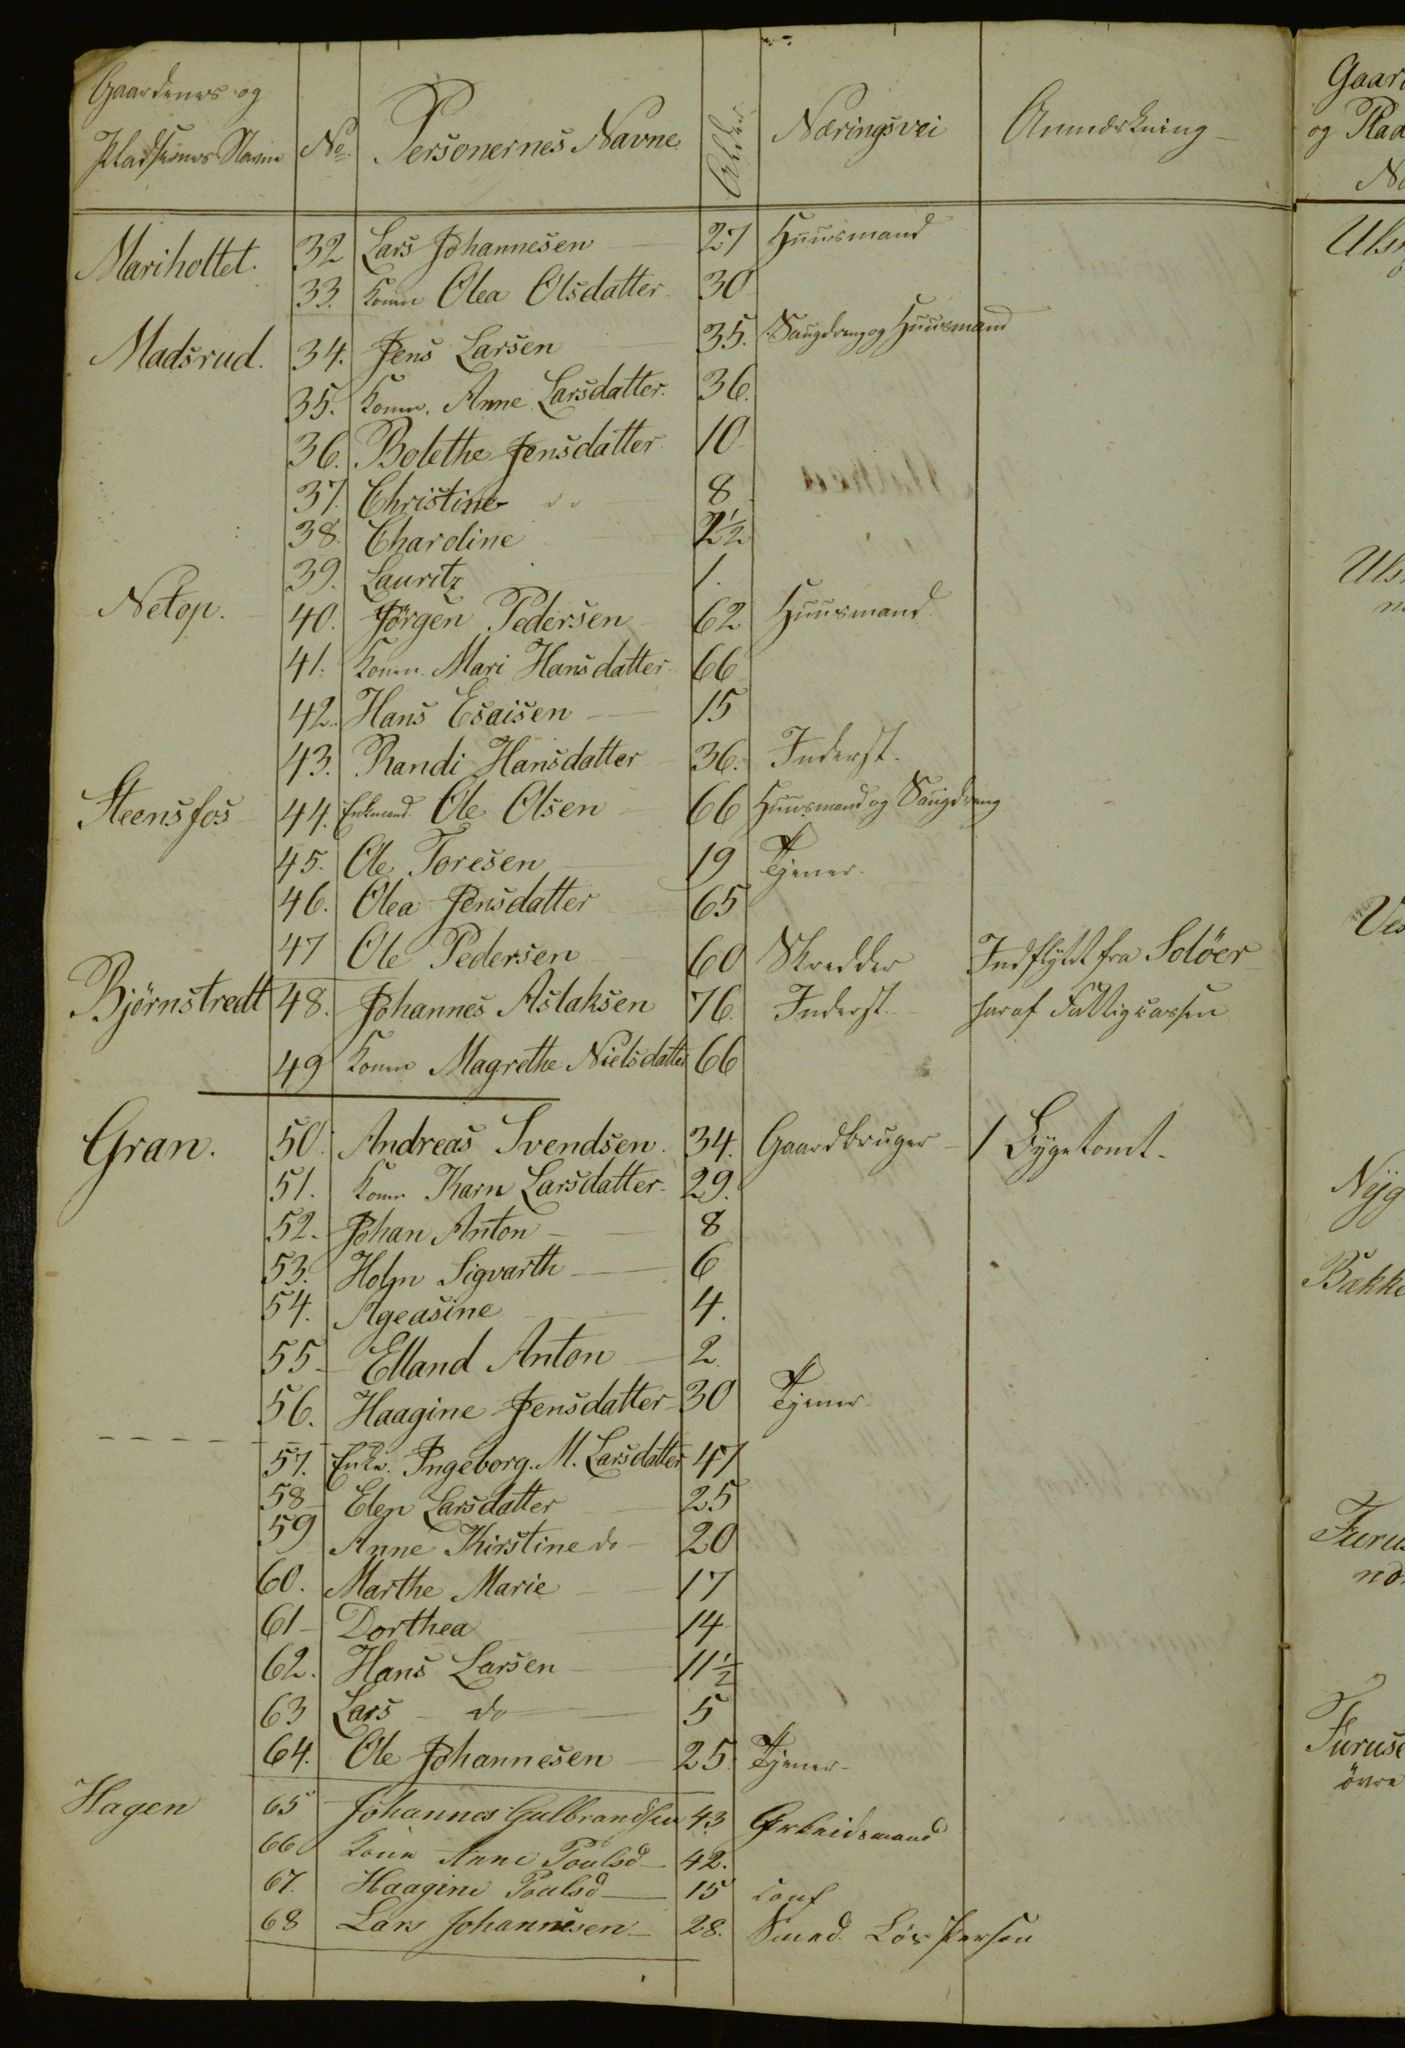 Gaardenes og
Pladsernes Navne No. Personernes Navne Alder Næringsvei Anmærkning
Mariholtet. 32 Lars Johannesen 27 Huusmand
33. Konen Olea Olsdatter 30
Madsrud. 34. Jens Larsen 35. Saugdreng og Huusmand
35. Konen. Anne Larsdatter. 36.
36. Bolethe Jensdatter 10
37. Christine do 8
38. Charoline 2½
39. Lauritz 1.
Netop. 40. Jörgen Pedersen 62 Huusmand
41. Konen. Mari Hansdatter 66
42. Hans Esaisen 15
43. Randi Hansdatter 36. Inderst.
Steensfos 44. Enkemand. Ole Olsen 66 Huusmand og Saugdreng
45. Ole Toresen 19 Tjener.
46. Olea Jensdatter 65
47 Ole Pedersen 60 Skredder Indflydt fra Solöer
Björnstredt 48. Johannes Aslaksen 76. Inderst. har af Fattigcassen
49 Konen Magrethe Nielsdatter 66
Gran. 50. Andreas Svendsen. 34. Gaardbruger 1 Bygetomt.
51. Konen Karn Larsdatter 29.
52. Johan Anton 8
53. Holm Sigvarth 6
54. Ageasine 4.
55 Elland Anton 2
56. Haagine Jensdatter 30 Tjener
57. Enke. Ingeborg. M. Larsdatter 47
58 Elen Larsdatter 25
59 Anne Kirstine do 20
60. Marthe Marie 17
61 Dorthea 14
62. Hans Larsen 11½
63 Lars do 5
64. Ole Johannesen 25. Tjener
Hagen 65 Johannes Gulbrandsen 43 Arbeidsmand
66 Konen Anne Poulsd 42.
67. Haagine Poulsd 15 conf
68 Lars Johannesen 28. Smed Lös Person
Gaar
og Plad
Na
Ulsr
Ulsr
n
Ves
Nÿg
Bække
Furus
nd
Furuse
övre